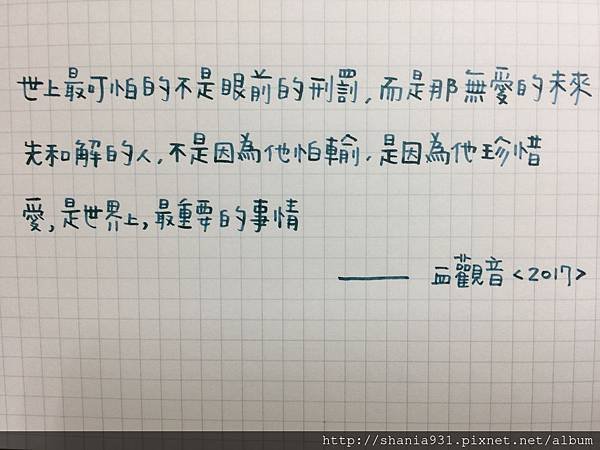 世上最可怕的不是眼前的刑罰,而是那無愛的未來
先和解的人,不是因為他怕輸,是因為他珍惜
愛,是世界上,最重要的事情
—— 血觀音<2017>
http://shania931.pixnet.net/album